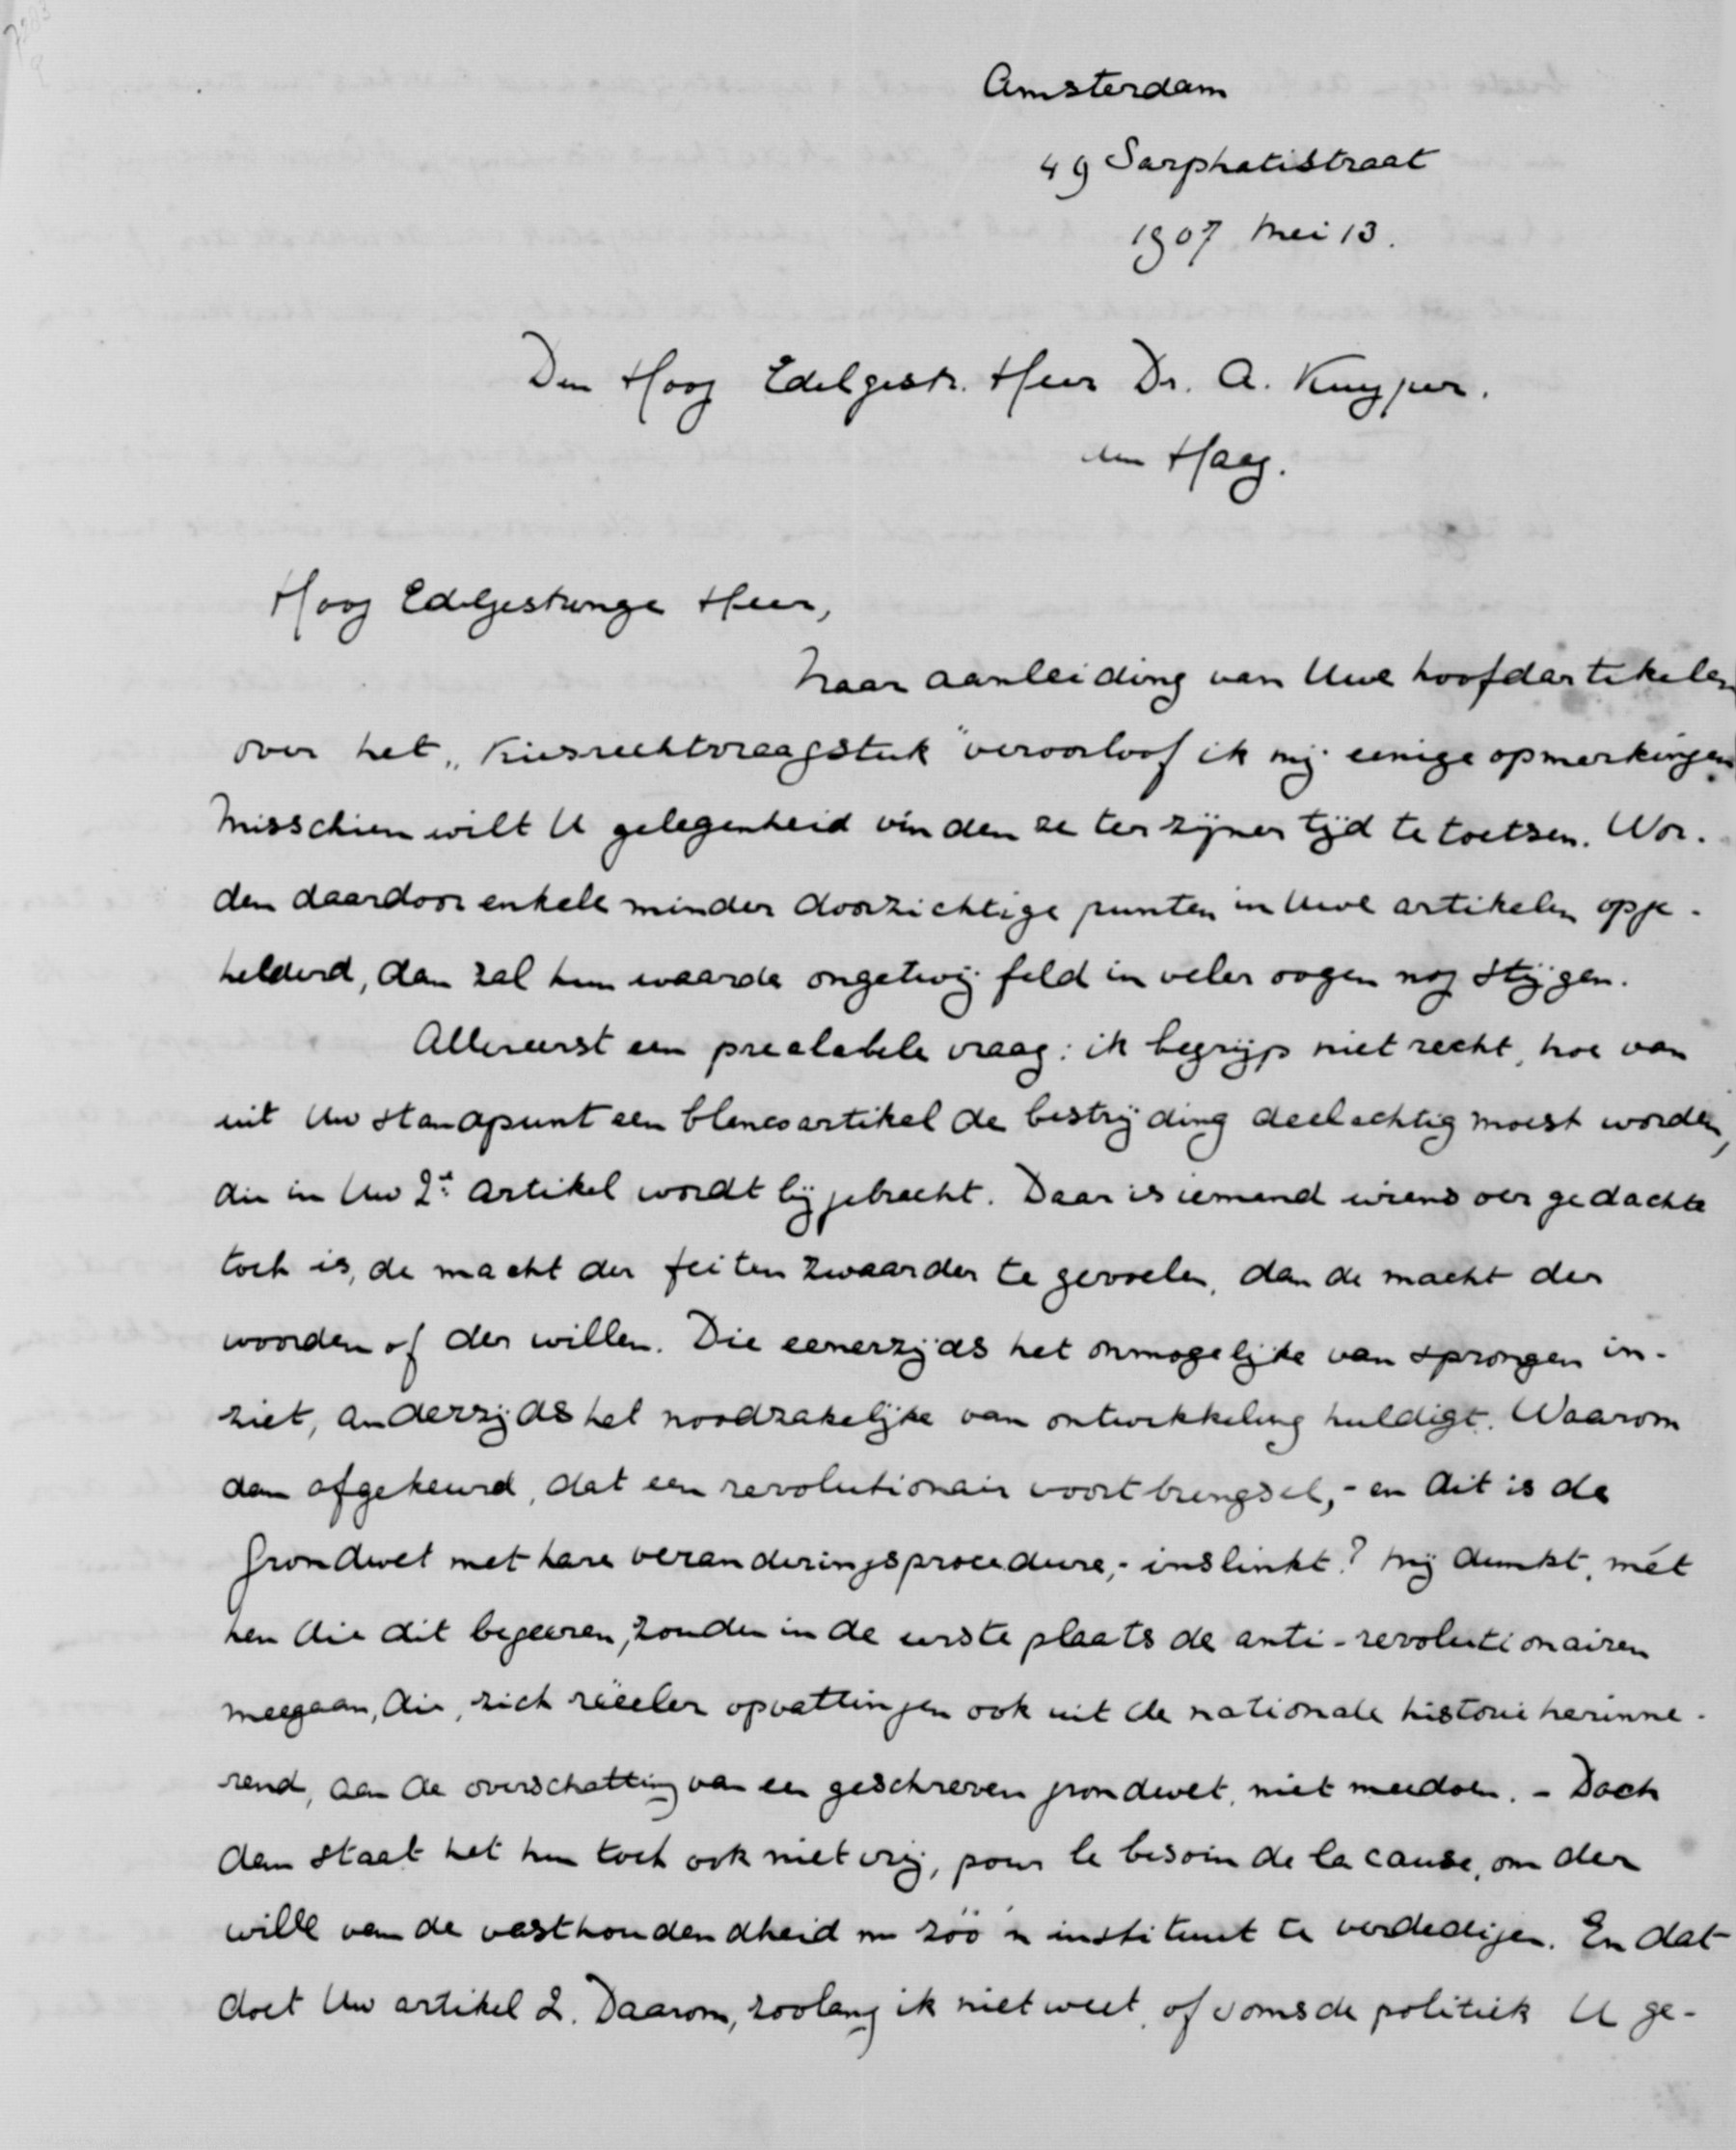 Amsterdam
49 Sarphatistraat
1907 Mei 13.
Den Hoog Edelgestr. Heer Dr. A. Kuyper.
den Haag.
Hoog Edelgestrenge Heer,
Naar aanleiding van Uwe hoofdartikelen
over het „Kiesrechtvraagstuk" veroorloof ik mij eenige opmerkingen.
Misschien wilt U gelegenheid vinden ze ter zijner tijd te toetsen. Wor-
den daardoor enkele minder doorzichtige punten in Uwe artikelen opge-
helderd, dan zal hun waarde ongetwijfeld in veler oogen nog stijgen.
Allereerst een prealabele vraag: ik begrijp niet recht, hoe van
uit Uw standpunt een blancoartikel de bestrijding deelachtig moest worden,
die in Uw 2e artikel wordt bijgebracht. Daar is iemand wiens oergedachte
toch is, de macht der feiten zwaarder te gevoelen, dan de macht der
woorden of der willen. Die eenerzijds het onmogelijke van sprongen in-
ziet, anderzijds het noodzakelijke van ontwikkeling huldigt. Waarom
dan afgekeurd, dat een revolutionair voortbrengsel, - en dit is de
Grondwet met hare veranderingsprocedure, - inslinkt? Mij dunkt, mét
hen die dit begeeren, zouden in de eerste plaats de anti-revolutionairen
meegaan, die, zich reëeler opvattingen ook uit de nationale historie herinne-
rend, aan de overschatting van een geschreven grondwet, niet meedoen. - Doch
dan staat het hun toch ook niet vrij, pour le besoin de la cause, om der
wille van de vasthoudendheid nu zóó'n instituut te verdedigen. En dat
doet Uw artikel 2. Daarom, zoolang ik niet weet, of soms de politiek U ge-